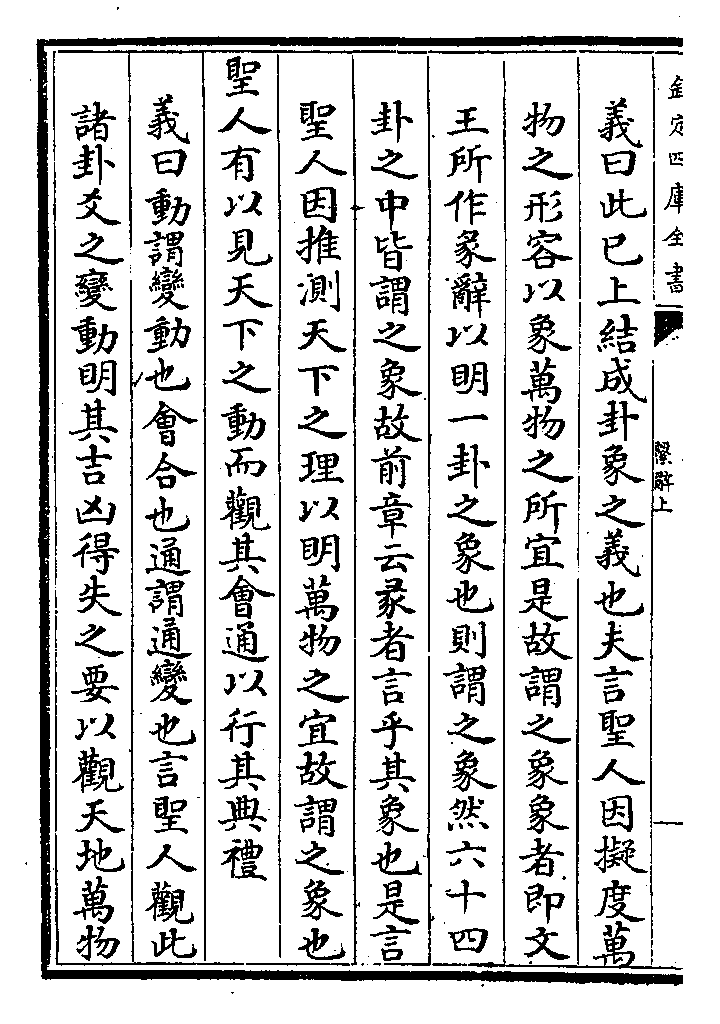 欽定四庫全書
繫辭上
義曰此已上結成卦象之義也夫言聖人因擬度萬
物之形容以象萬物之所宜是故謂之象象者即文
王所作彖辭以明一卦之象也則謂之象然六十四
卦之中皆謂之象故前章云彖者言乎其象也是言
聖人因推測天下之理以明萬物之宜故謂之象也
聖人有以見天下之動而觀其會通以行其典禮
義曰動謂變動也會合也通謂通變也言聖人觀此
諸卦爻之變動明其吉凶得失之要以觀天地萬物